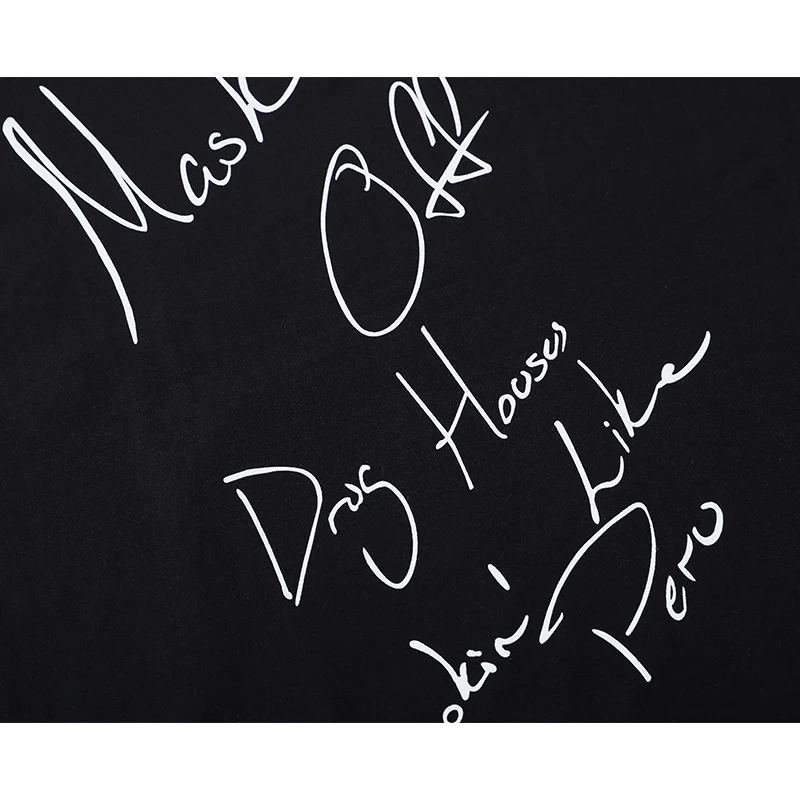 Mask
Off
Drug Houses
okin' Like
Peru